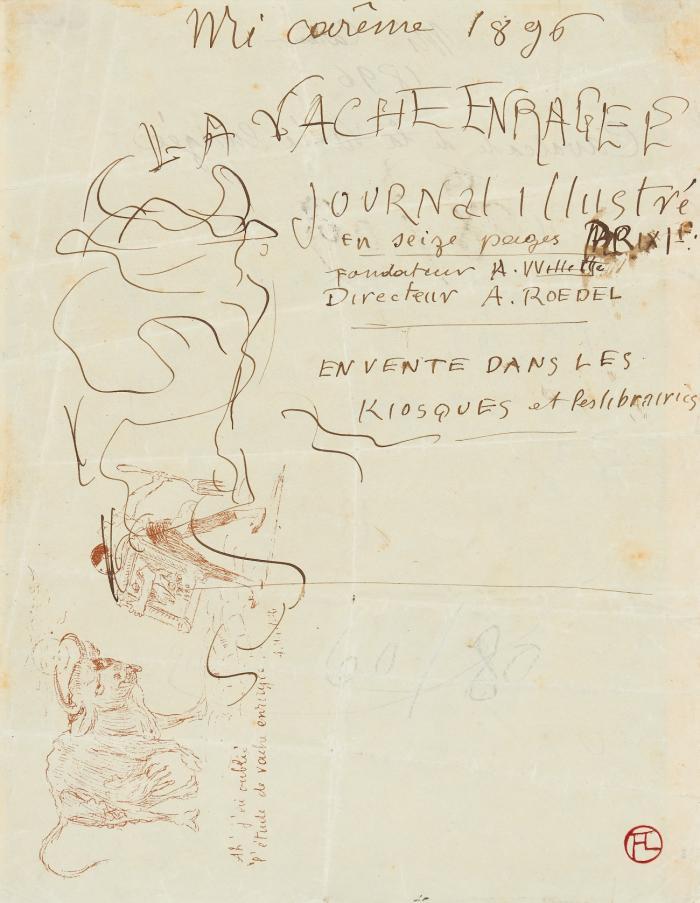 Mi carême 1896
LA VACHE ENRAGEE
JOURNal Illustré
en seize pages PRIX 1F.
fondateur A. Willette
Directeur A. ROEDEL
EN VENTE DANS LES
KIOSQUES et les librairies
Ah! j'ai oublié
l'étude de vache enragée